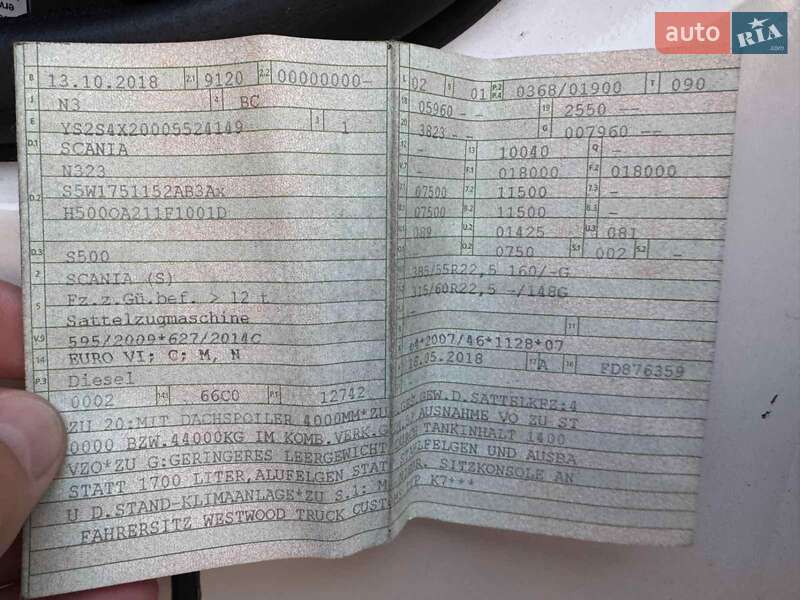 auto RIA.com
B 13.10.2018 2.1 9120 2.2 00000000-
J N3 4 BC
E YS2S4X20005524149 3 1
D.1 SCANIA
N323
D.2 S5W1751152AB3Ax
H500OA211F1001D
D.3 S500
2 SCANIA (S)
5 Fz.z.Gü.bef. > 12 t
Sattelzugmaschine
V.9 595/2009*627/2014C
14 EURO VI; C; M, N
P.3 Diesel
0002 14.1 66C0 P.1 12742
L 02 9 01 P.2 P.4 0368/01900 T 090
18 05960 - - 19 2550 --
20 3823 - - G 007960 --
12 - 13 10040 Q -
V.7 - F.1 018000 F.2 018000
7.1 07500 7.2 11500 7.3 -
8.1 07500 8.2 11500 8.3 -
U.1 089 U.2 01425 U.3 081
O.1 - O.2 0750 S.1 002 S.2 -
385/55R22,5 160/-G
315/60R22,5 -/148G
- 11
e4*2007/46*1128*07
16.05.2018 17 A 16 FD876359
ZU 20:MIT DACHSPOILER 4000MM*ZU GEW.D.SATTELKFZ:4
0000 BZW.44000KG IM KOMB.VERK.G AUSNAHME VO ZU ST
VZO*ZU G:GERINGERES LEERGEWICHT TANKINHALT 1400
STATT 1700 LITER,ALUFELGEN STATT FELGEN UND AUSBA
U D.STAND-KLIMAANLAGE*ZU S.1: M SITZKONSOLE AN
FAHRERSITZ WESTWOOD TRUCK CUSTOMS K7***